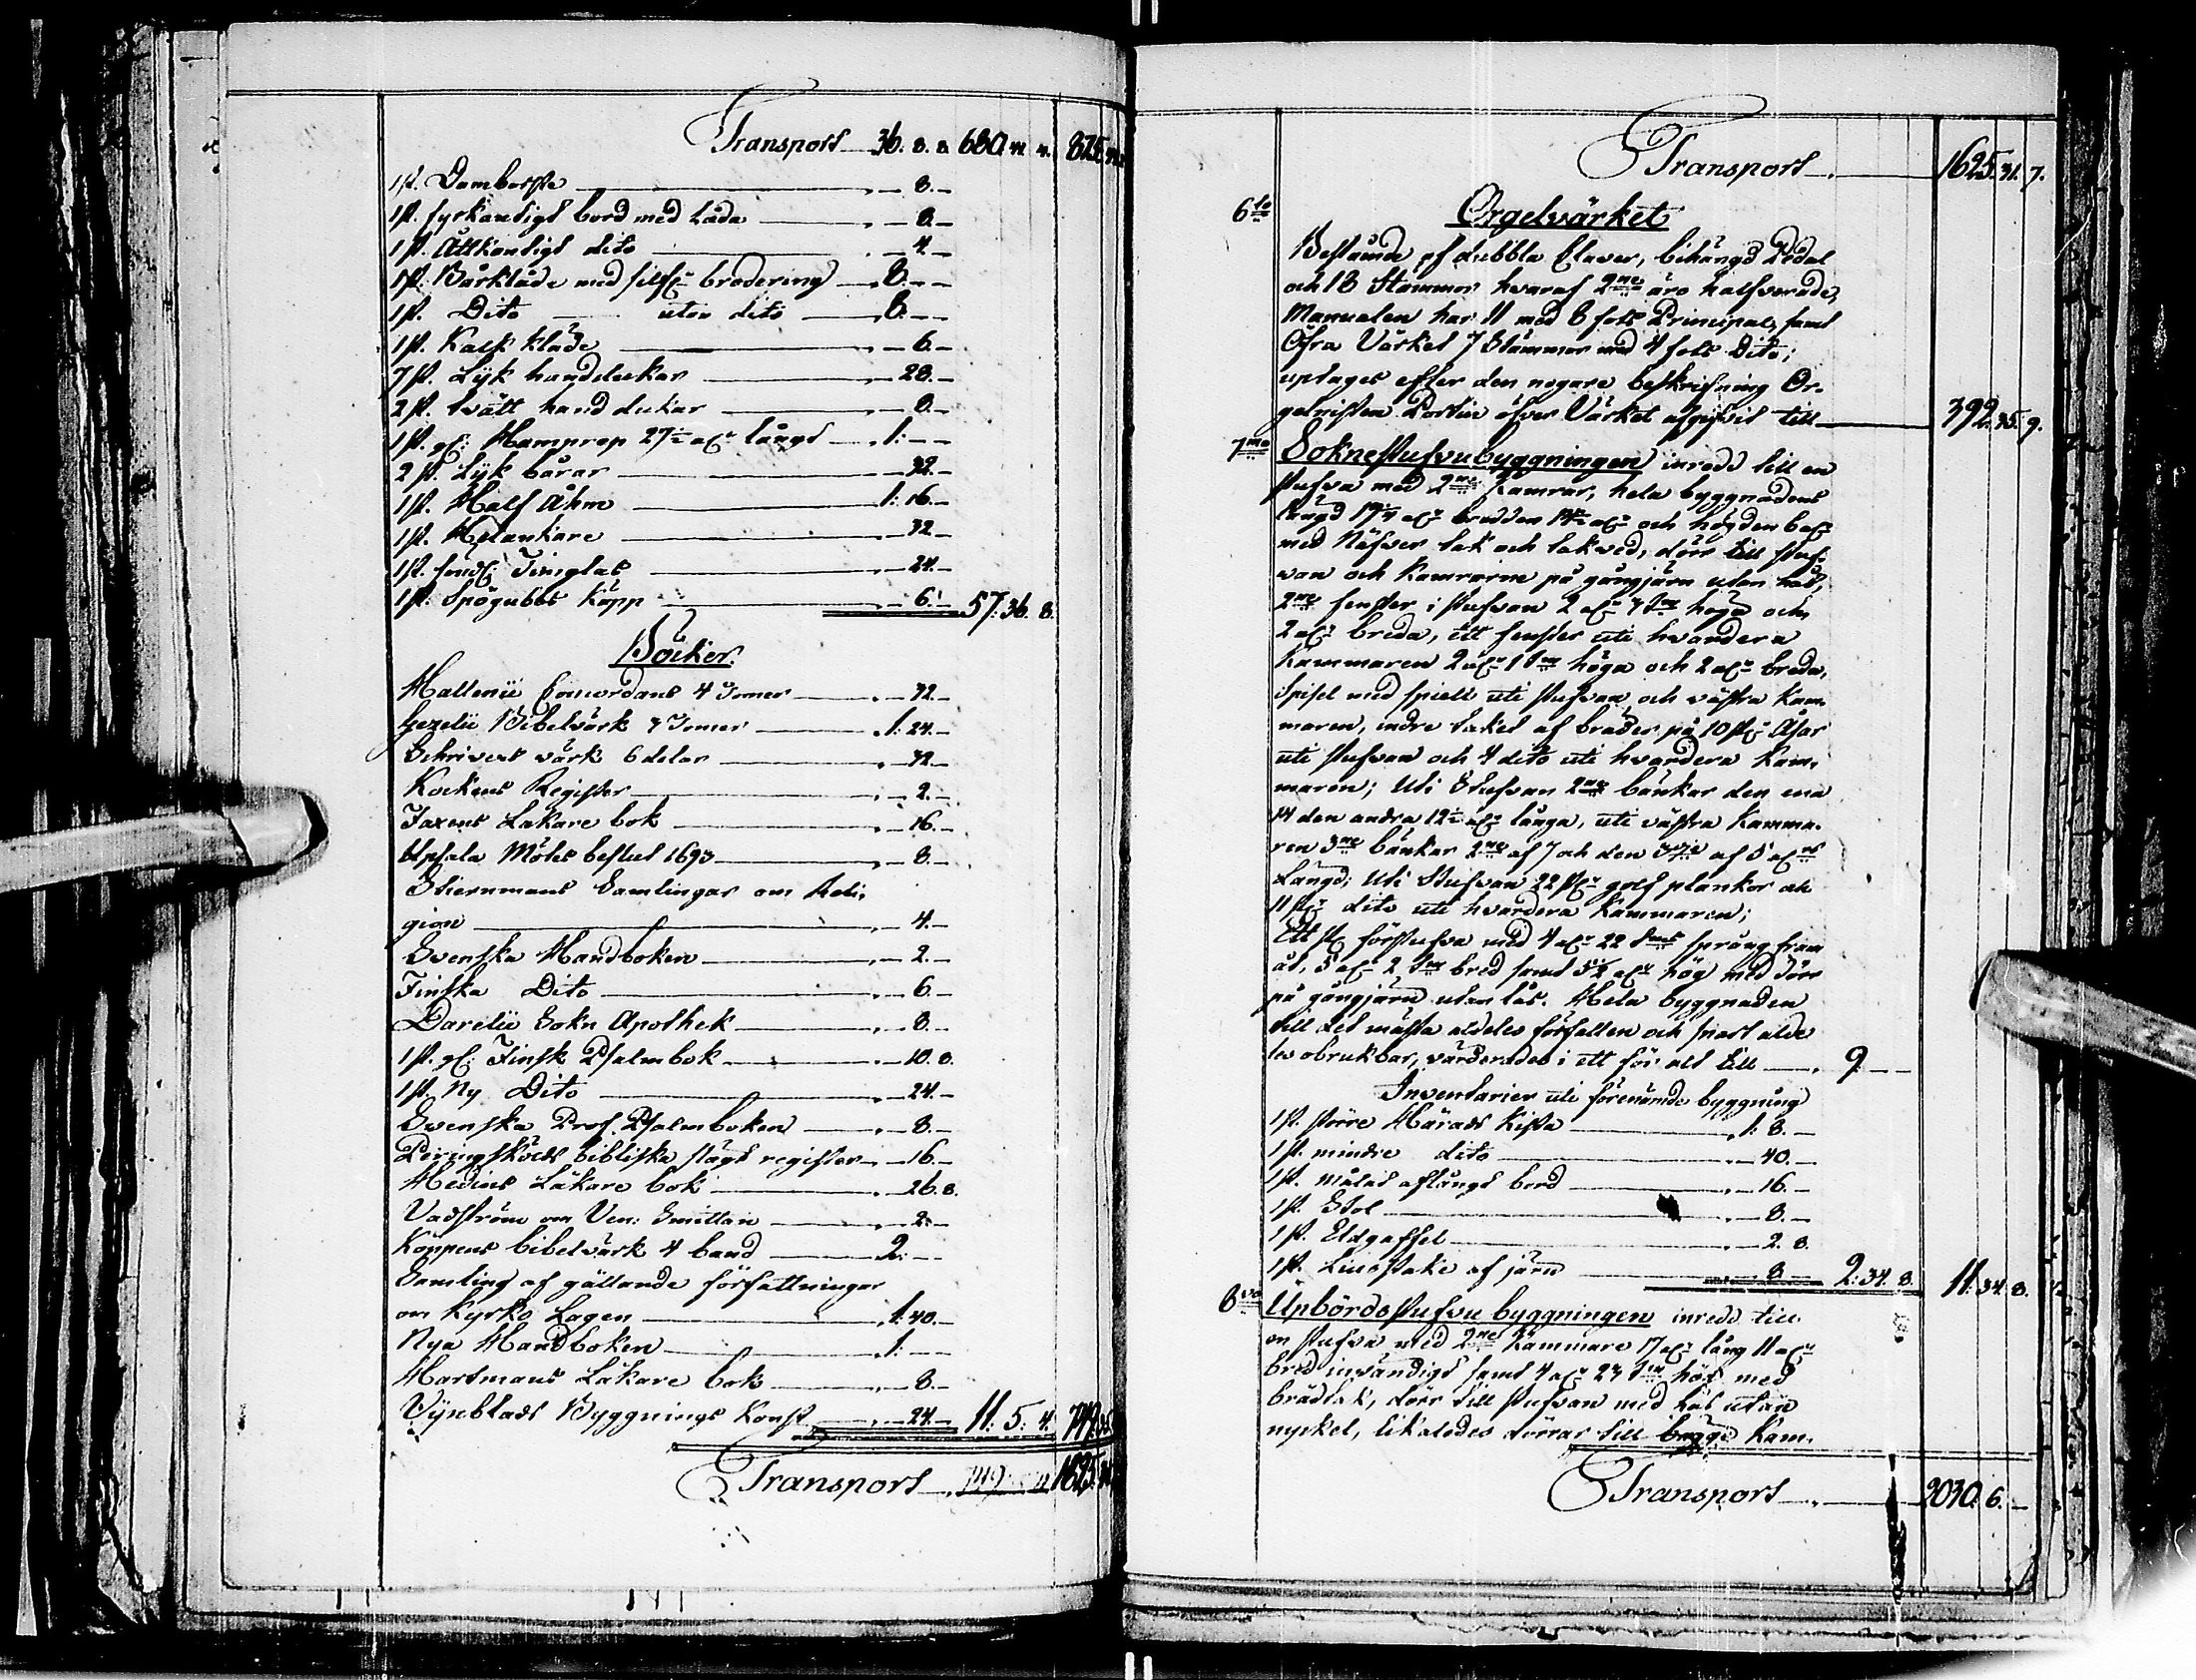 Transport 36. 8. 8. 680. 41. 4. 825.
1 st. Damborste 8.
1 st. fyrkantigt bord med låda 8.
1 st. Åttkantigt dito 4.
1 st. Bårkläde med silfr brodering 8.
1 st. Dito utan dito 8.
1 st. Kalk kläde 6.
7 st. Lyk handdukar 28.
2 st. tvätt hand dukar 8.
1 st. gl: Hamprep 27 aln långt 1:
2 st. Lyk bårar 32.
1 st. Half Åhm 1: 16.
1 st. Helankare 32.
1 st. Timglas 24.
1 st. Spögubbs Käpp 6. 57: 36. 8.
Böcker.
Hallenii Concordans 4 Tomer 32.
Gezelii Bibelvärk 3 Tomer 1: 24.
Schrivers värk 6 delar 32
Kockens Register 2.
Faxens Läkare bok 16.
Upsala Mötes beslut 1693 8.
Stiernmans Samlingar om Reli-
gion 4.
Svenska Handboken 2.
Finska Dito 6.
Darelii Sokn Apothek 8.
1 st. gl: Finsk Psalmbok 10. 8.
1 st. Ny Dito 24.
Svenska Prof. Psalmboken 8.
Peringskölds bibliska slägt register 16.
Hedins Läkare bok 26. 8.
Vadström om Ven: Smittan 2.
Köppens bibelvärk 4 band 2:
Samling af gällande författningar
om Kyrko Lagen 1: 40.
Nya Handboken 1:
Hartmans Läkare bok 8.
Vijnblads Byggnings Konst 24. 11: 5: 4. 749.
Transport 1625.
Transport 1625. 31. 7.
6to Orgelvärket
Bestående af dubbla Claver, bihängd Pedal
och 18 Stämmor hvaraf 2ne äro halfverade,
Manualen har 11 med 8 fots Principal, samt
Öfra Värket 7 Stämmor med 4 fots Dito;
uptages efter den nogare beskrifning Or-
gelnisten Portin öfver Värket afgifvit till 392. 35. 9.
7mo Soknestufvubyggningen inredd till en
stufva med 2ne Kamrar, hela byggnadens
längd 19 aln bredden 14 aln och högden 6 aln
med Näfver tak och takved, dörr till stuf-
van och Kamrarne på gångjärn utan lås,
2ne fenster i stufvan 2 aln 3 tum höga och
2 aln breda, ett fenster uti hvardera
Kammaren 2 aln 1 tum höga och 2 aln breda,
Spisel med spiell uti stufvan och västra Kam-
maren, indre taket af bräder på 10 st. Åsar
uti stufvan och 4 dito uti hvardera Kam-
maren; Uti Stufvan 2ne bänkar den ena
14 den andra 12 aln långa, uti västra Kamma-
ren 3ne bänkar 2ne af 7 och den 3dje af 5 alns
Längd; Uti Stufvan 22 st. golf plankor och
11 st. dito uti hvardera Kammaren;
Ett st. förstufva med 4 aln 22 tums språng fram
åt, 5 aln 2 tum bred samt 5 1/2 aln hög med dörr
på gångjärn utan lås. Hela byggnaden
till det mästa aldeles förfallen och snart alde
les obrukbar, värderades i ett för alt till 9.
Inventarier uti förenämde byggning
1 st. större Härads Kista 1: 8.
1 st. mindre dito 40.
1 st. målat aflångt bord 16.
1 st. Stol 8.
1 st. Eldgaffel 2. 8.
1 st. Liusstake af järn 8 2: 34. 8. 11: 34. 8.
8vo Upbördsstufvu byggningen inredd till
en stufva med 2ne Kammare 17 aln lång 11 aln
bred invändigt samt 4 aln 23 tum hög med
brädtak, dörr till stufvan med lås utan
nyckel, likaledes dörrar till bägge Kam-
Transport 2030. 6.